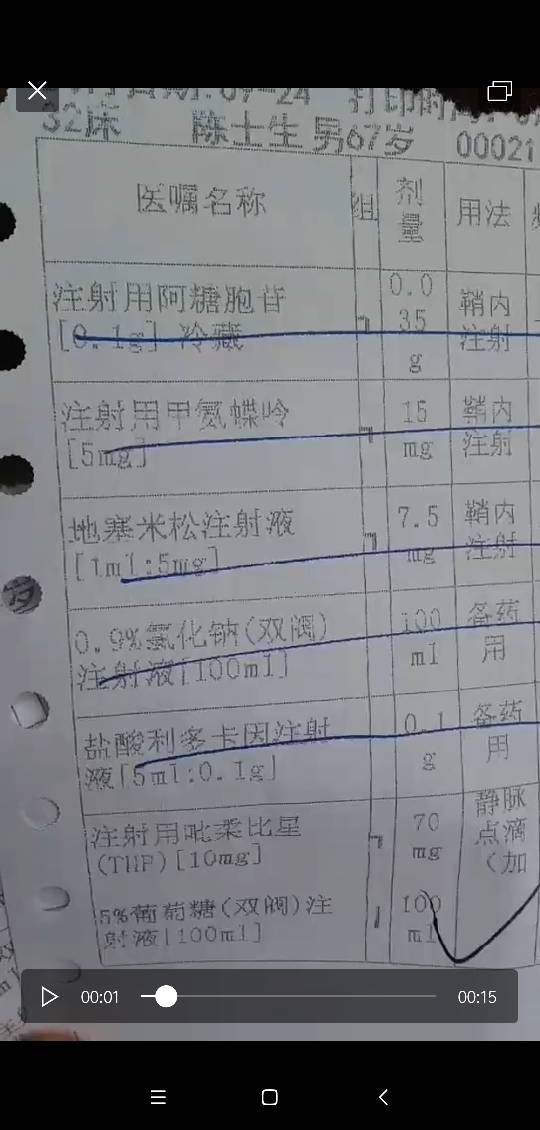 32床 陈士生 男67岁 00021
医嘱名称 组 剂量 用法
注射用阿糖胞苷
[0.1g] 冷藏
0.0
35
g
鞘内
注射
注射用甲氨蝶呤
[5mg]
15
mg
鞘内
注射
地塞米松注射液
[1ml:5mg]
7.5
mg
鞘内
注射
0.9%氯化钠(双阀)
注射液[100ml]
100
ml
备药
用
盐酸利多卡因注射
液[5ml:0.1g]
0.1
g
备药
用
注射用吡柔比星
(THP)[10mg]
70
mg
静脉
点滴
(加
5%葡萄糖(双阀)注
射液[100ml]
100
ml
00:01 00:15